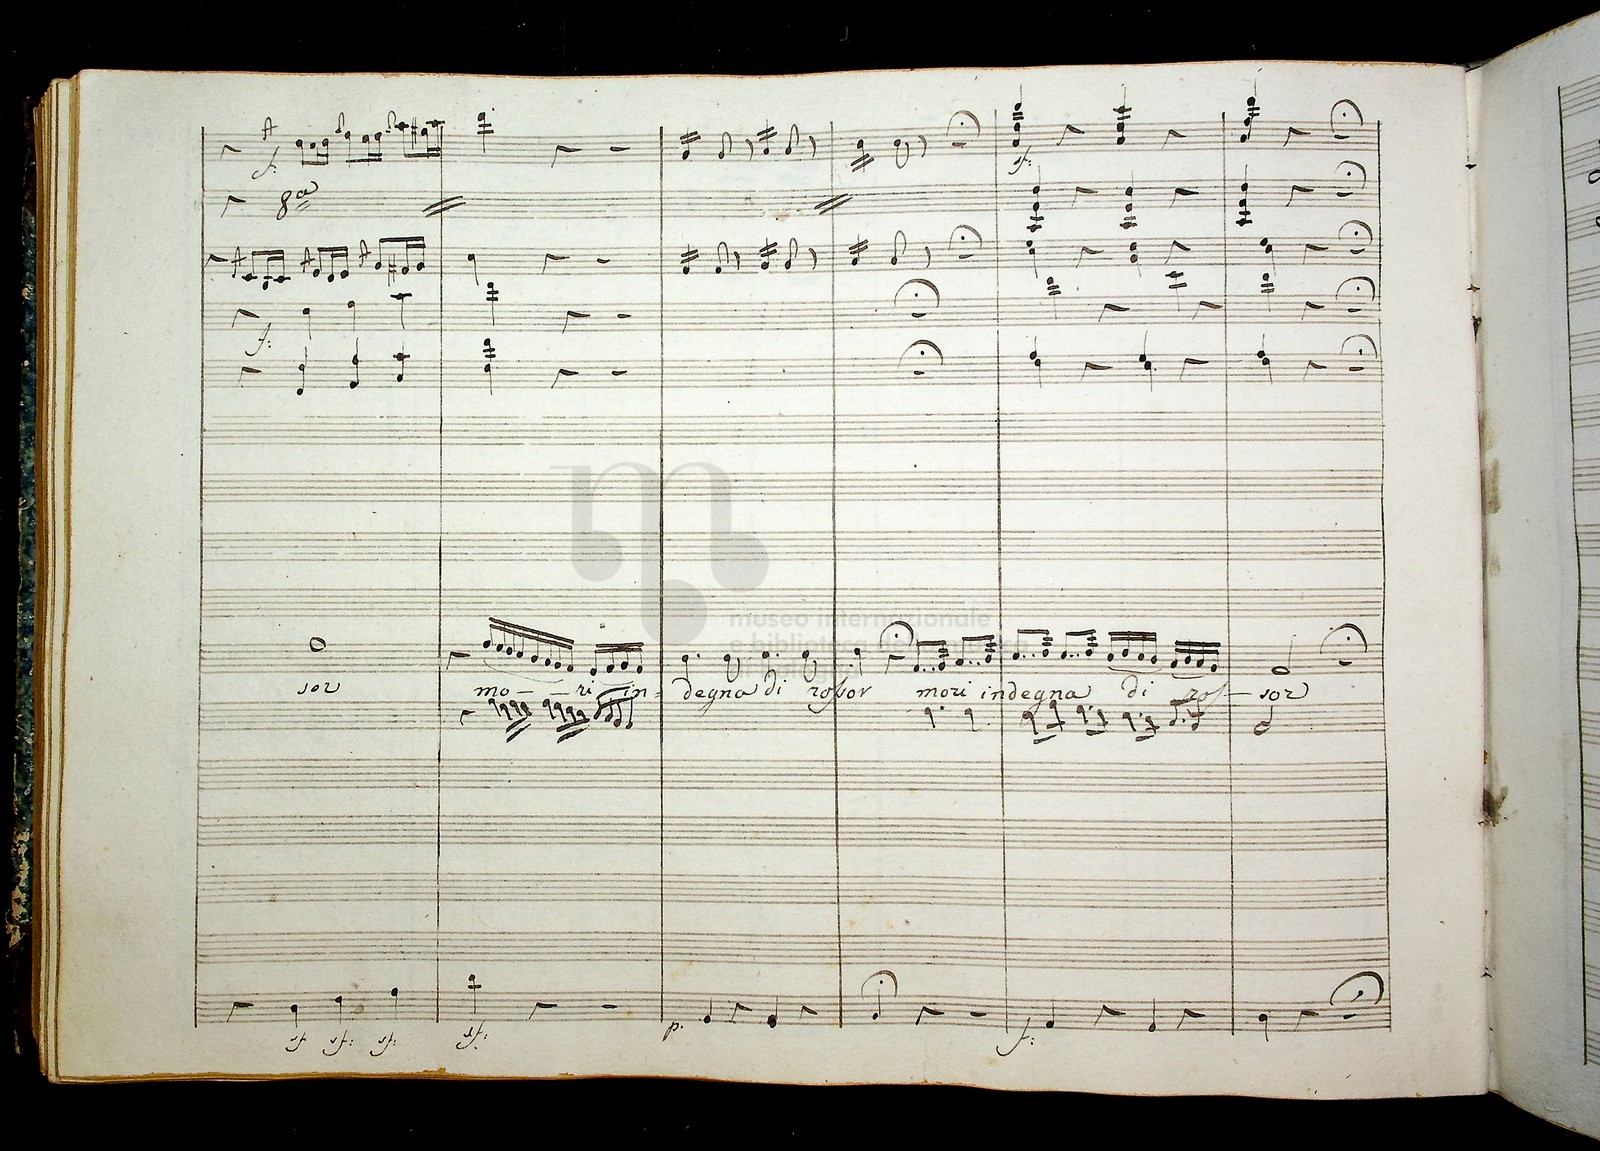 f:
8va
f:
f:
museo internazionale
e biblioteca della musica
di bologna
sor mo - - ri in = degna di rossor mori indegna di ros - sor
sf sf: sf: sf: p. f: